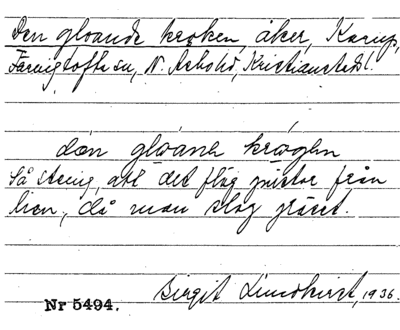 Den gloande kroken, åker, Karup,
Färingtofta sn, N. Åsbohd, Kristianstads l.
dän glöane krogen
Så stenig, att det flög gnistor från
lien, då man slog gräset.
Birgit Lindkvist, 1936.
Nr 5494.